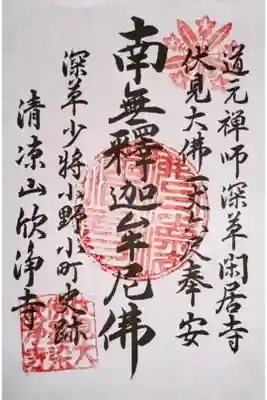 道元禅師深草閑居寺
伏見大佛一丈六尺奉安
南無釋迦牟尼佛
深草少将小野小町史跡
清凉山欣浄寺